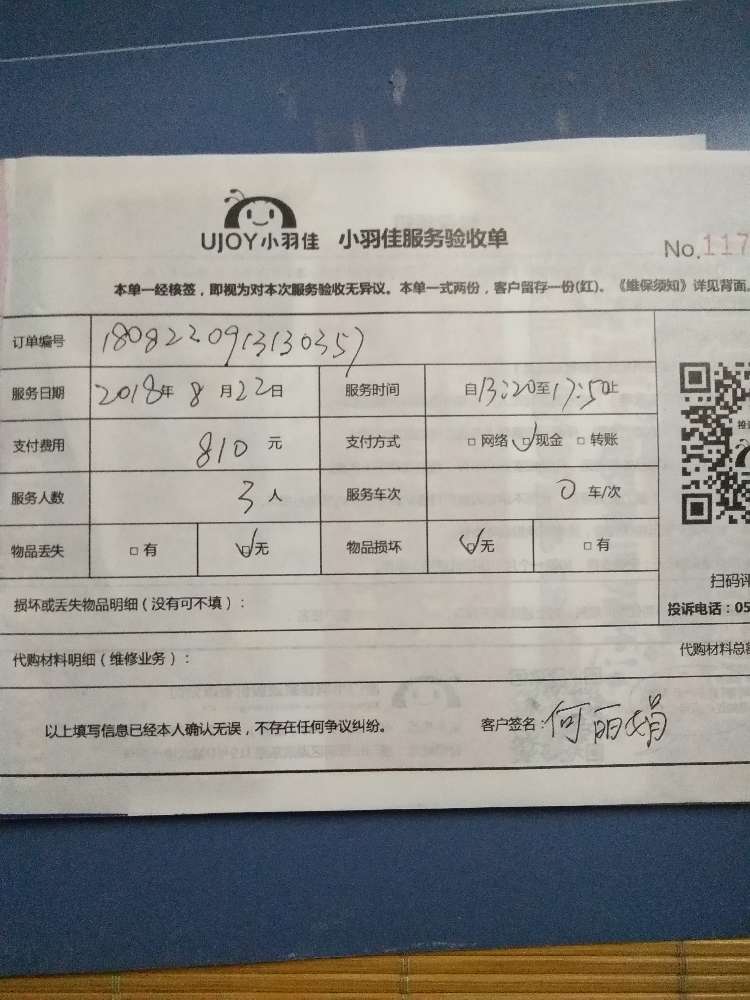 UJOY小羽佳 小羽佳服务验收单
No.117
本单一经核签，即视为对本次服务验收无异议。本单一式两份，客户留存一份(红)。《维保须知》详见背面。
订单编号 1808220913130357
服务日期 2018年 8 月22日 服务时间 自13:20至17:50止
支付费用 810 元 支付方式 □ 网络 ☑现金 □ 转账
服务人数 3 人 服务车次 0 车/次
物品丢失 □ 有 ☑无 物品损坏 ☑无 □ 有
扫码评
损坏或丢失物品明细（没有可不填）： 投诉电话：05
代购材料明细（维修业务）： 代购材料总额
以上填写信息已经本人确认无误，不存在任何争议纠纷。 客户签名：何丽娟